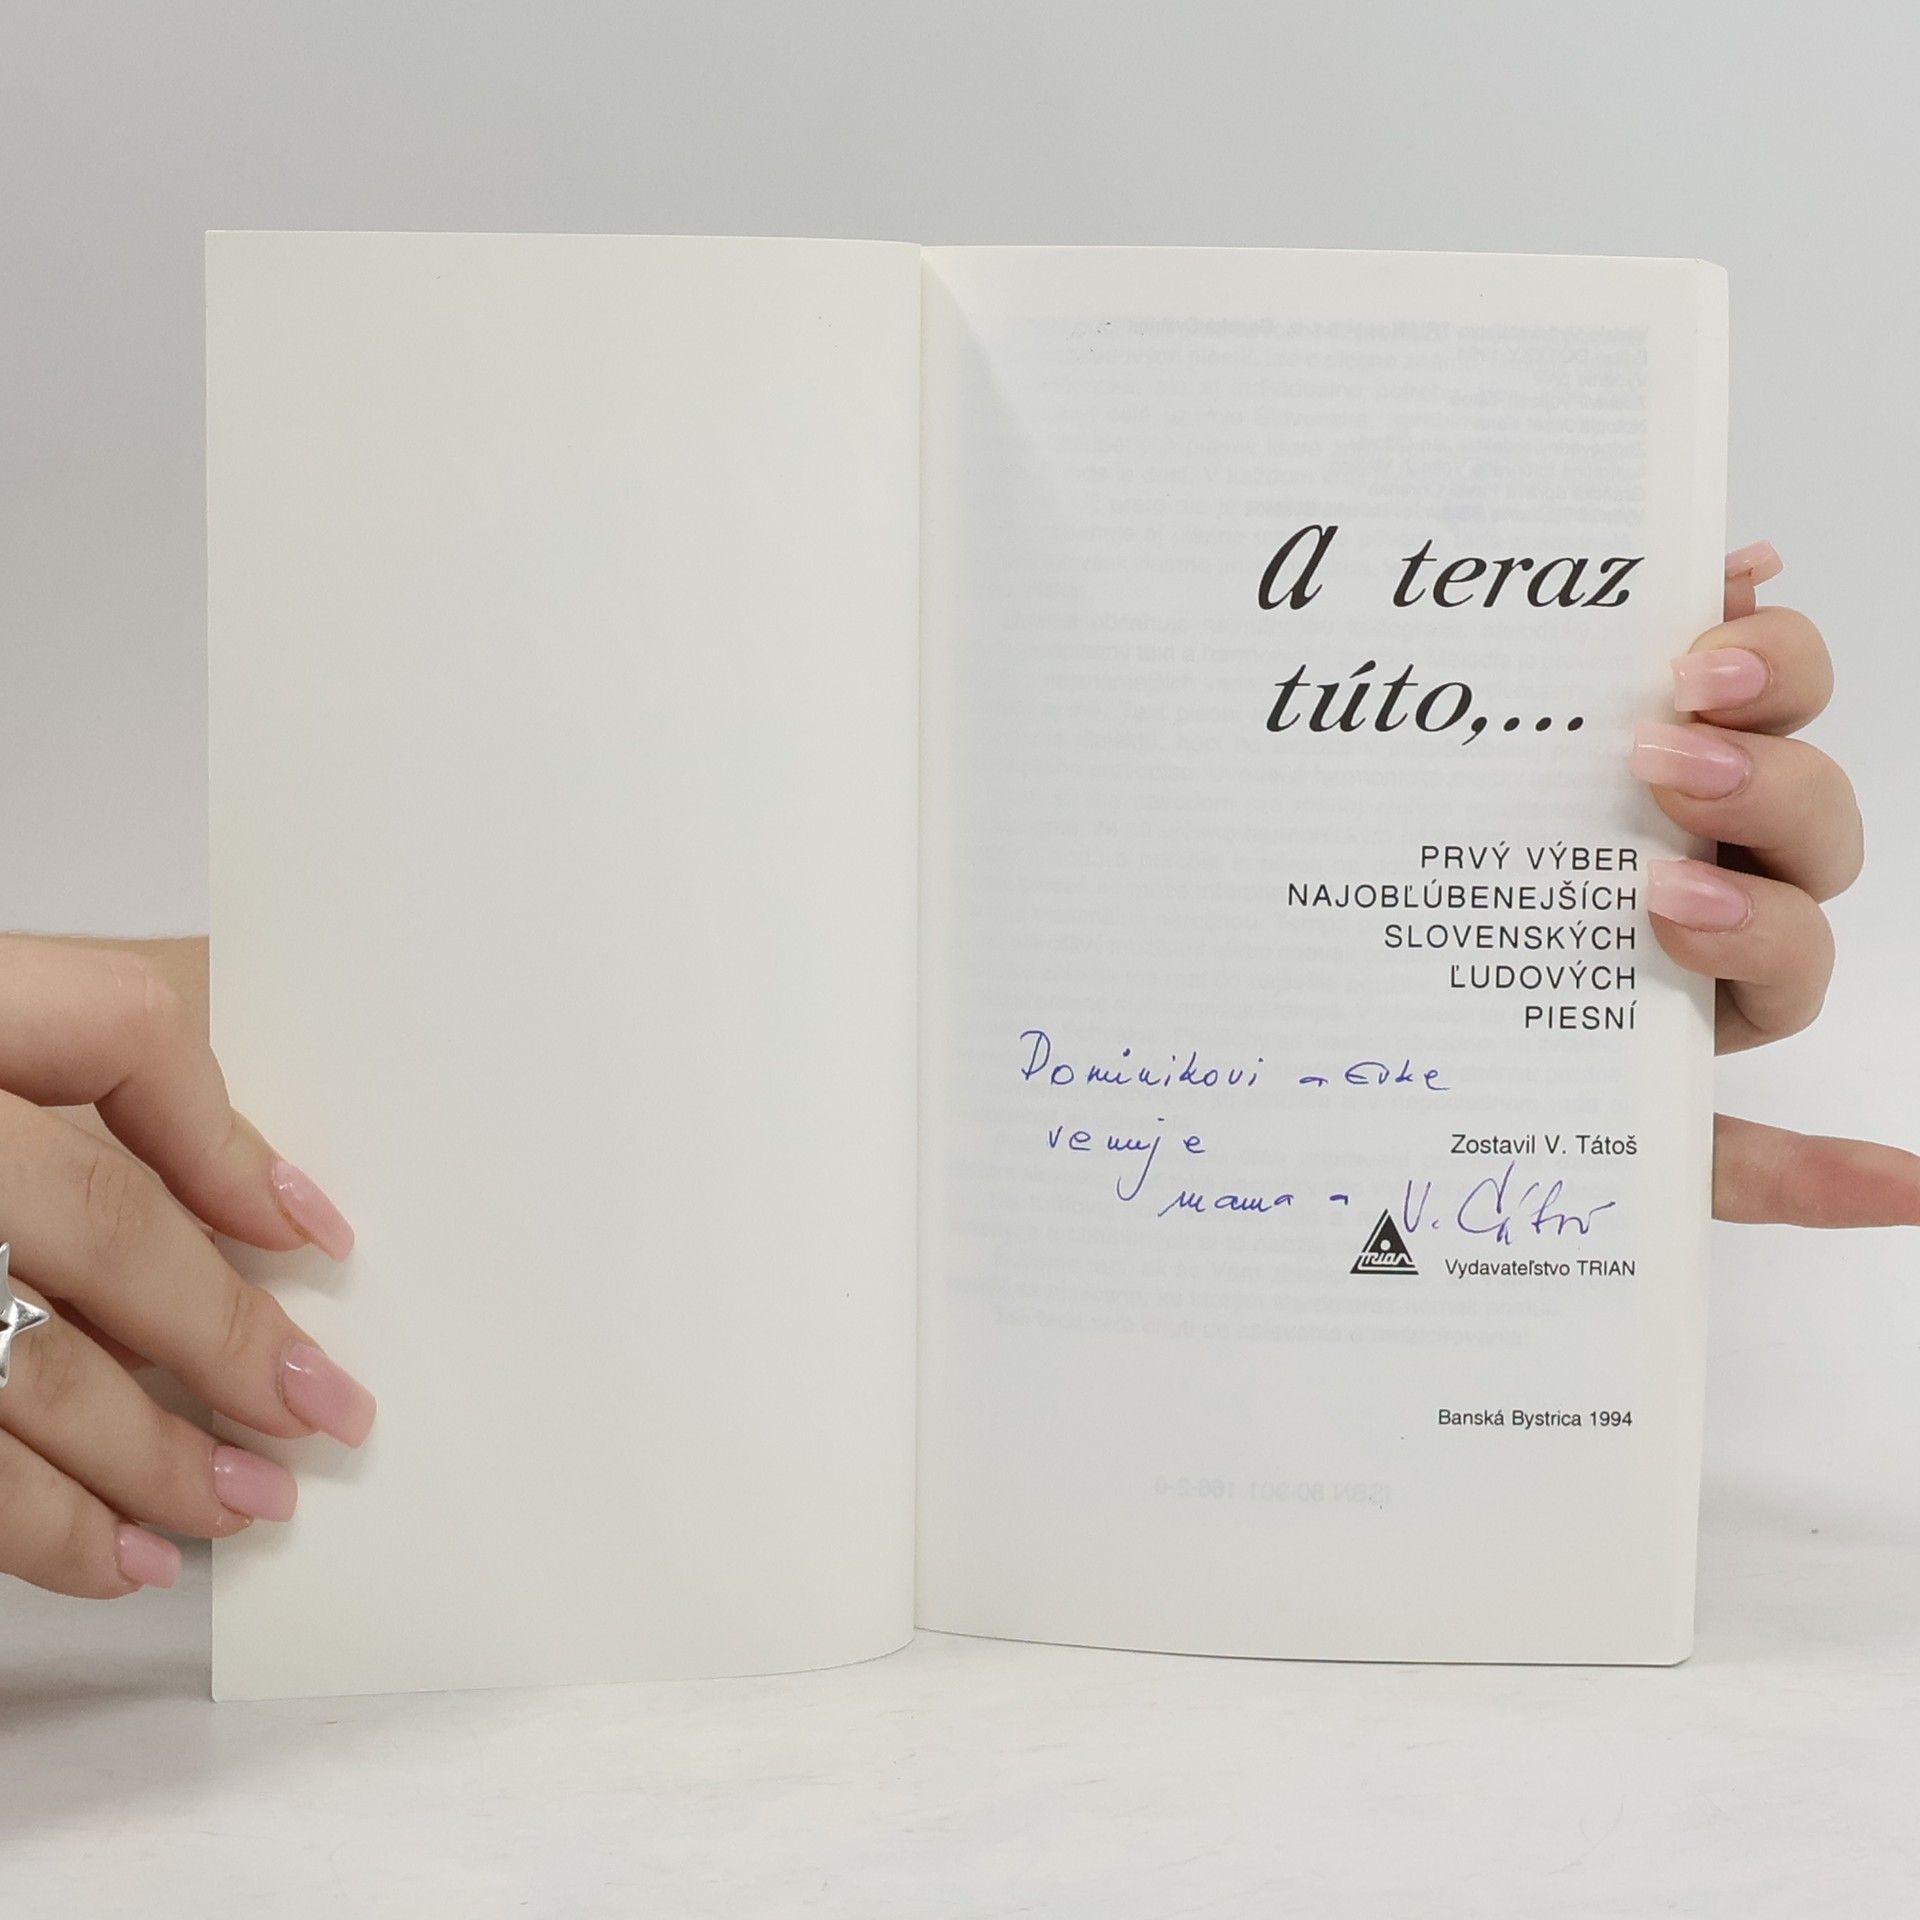 A teraz
túto,...
PRVÝ VÝBER
NAJOBĽÚBENEJŠÍCH
SLOVENSKÝCH
ĽUDOVÝCH
PIESNÍ
Dominikovi a Evke
venuje
Zostavil V. Tátoš
mama - V. Tátoš
TRIAN
Vydavateľstvo TRIAN
Banská Bystrica 1994